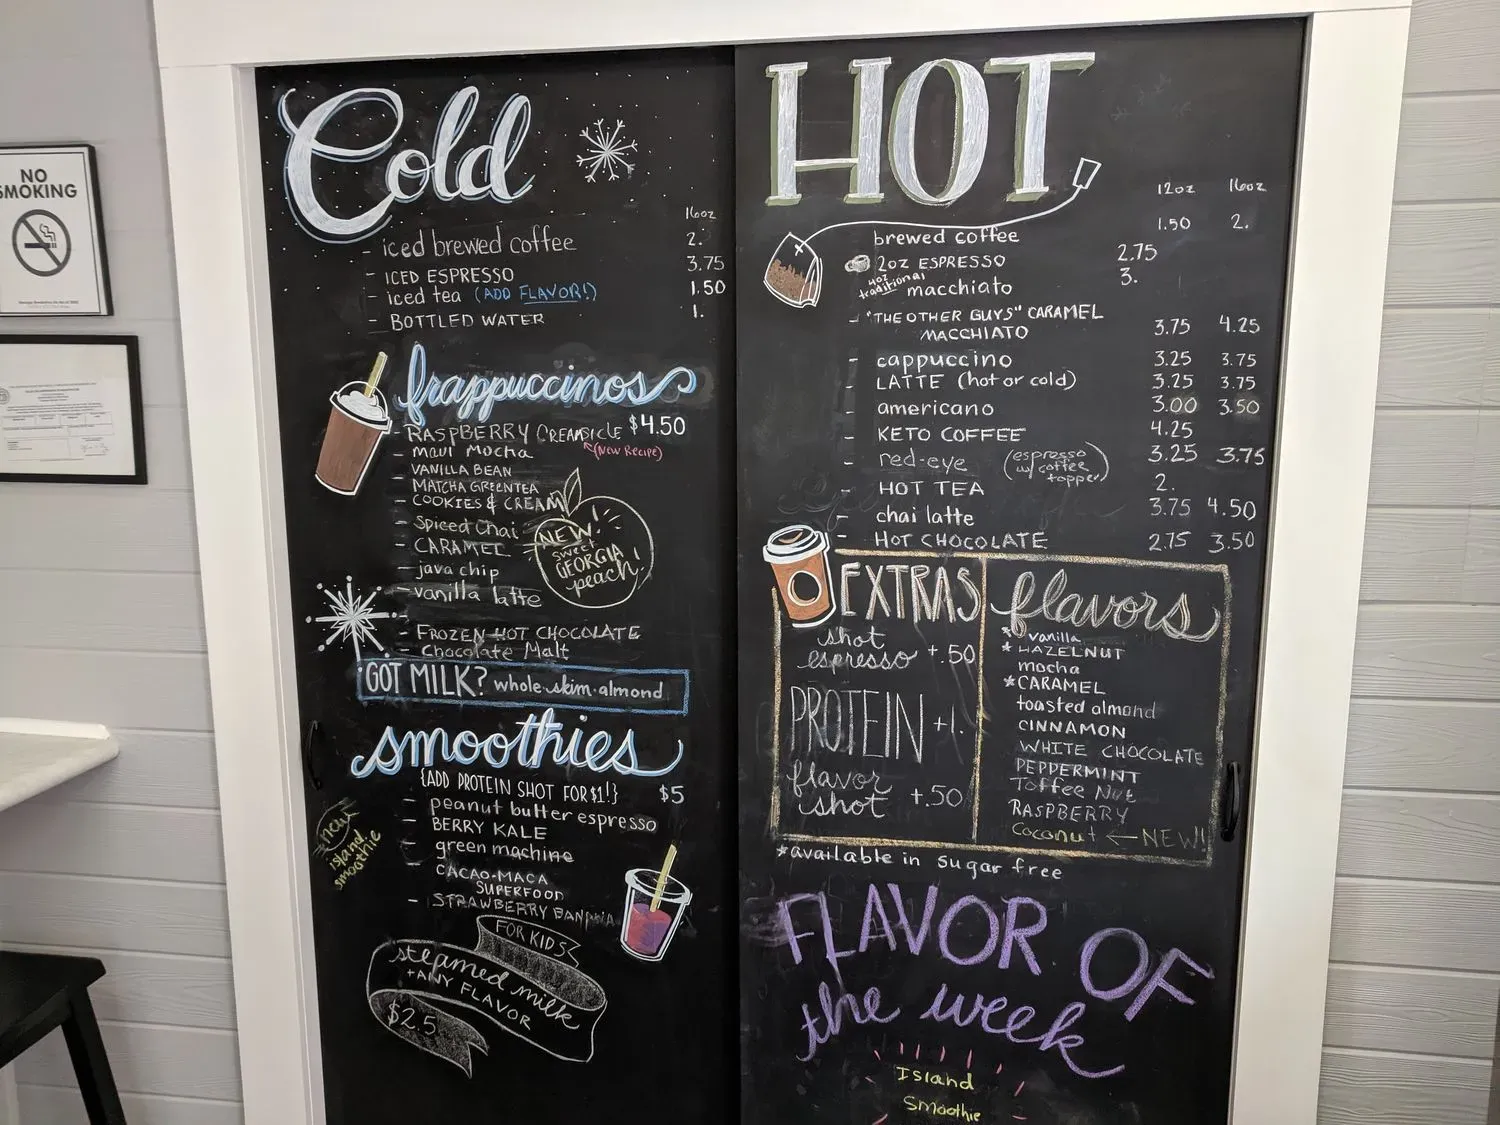 NO
SMOKING
Cold
16oz
- iced brewed coffee 2.
- ICED ESPRESSO 3.75
- iced tea (ADD FLAVOR!) 1.50
- BOTTLED WATER 1.
frappuccinos
$4.50
- RASPBERRY CREAMSICLE
(NEW RECIPE)
- Maui Mocha
VANILLA BEAN
- MATCHA GREENTEA
- COOKIES & CREAM
- Spiced Chai
- CARAMEL
- java chip
- vanilla latte
NEW!
sweet
GEORGIA
peach!
- FROZEN HOT CHOCOLATE
- Chocolate Malt
GOT MILK? whole·skim·almond
smoothies
{ADD PROTEIN SHOT FOR $1!} $5
- peanut butter espresso
- BERRY KALE
- green machine
- CACAO-MACA
SUPERFOOD
- STRAWBERRY BANANA
new
island
smoothie
FOR KIDS
steamed milk
+ANY FLAVOR
$2.5
HOT
12oz 16oz
brewed coffee 1.50 2.
2oz ESPRESSO 2.75
4oz
traditional macchiato 3.
- "THE OTHER GUYS" CARAMEL
MACCHIATO 3.75 4.25
- cappuccino 3.25 3.75
- LATTE (hot or cold) 3.25 3.75
- americano 3.00 3.50
- KETO COFFEE 4.25
- red-eye (espresso w/ coffee topper) 3.25 3.75
- HOT TEA 2.
- chai latte 3.75 4.50
- HOT CHOCOLATE 2.75 3.50
EXTRAS
shot
espresso +.50
PROTEIN +1.
flavor
shot +.50
flavors
* vanilla
* HAZELNUT
mocha
*CARAMEL
toasted almond
CINNAMON
WHITE CHOCOLATE
PEPPERMINT
Toffee Nut
RASPBERRY
Coconut ← NEW!!
*available in sugar free
FLAVOR OF
the week
Island
Smoothie